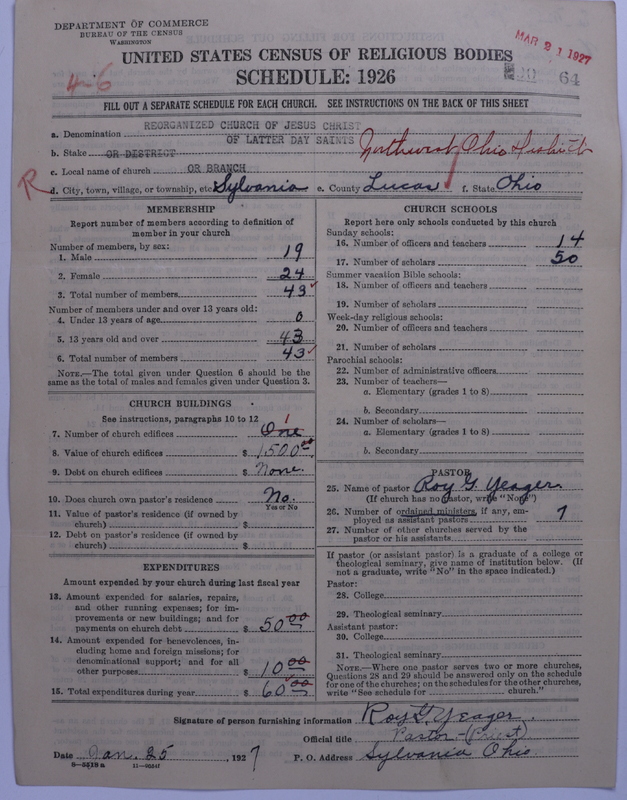 DEPARTMENT OF COMMERCE
BUREAU OF THE CENSUS
WASHINGTON
MAR 21 1927
UNITED STATES CENSUS OF RELIGIOUS BODIES
4-6
SCHEDULE: 1926
64
FILL OUT A SEPARATE SCHEDULE FOR EACH CHURCH. SEE INSTRUCTIONS ON THE BACK OF THIS SHEET
a. Denomination REORGANIZED CHURCH OF JESUS CHRIST
OF LATTER DAY SAINTS
b. Stake OR DISTRICT Northwest Ohio District
c. Local name of church OR BRANCH
R
d. City, town, village, or township, etc. Sylvania e. County Lucas f. State Ohio
MEMBERSHIP
Report number of members according to definition of
member in your church
Number of members, by sex:
1. Male 19
2. Female 24
3. Total number of members 43
Number of members under and over 13 years old:
4. Under 13 years of age 0
5. 13 years old and over 43
6. Total number of members 43
NOTE.—The total given under Question 6 should be the
same as the total of males and females given under Question 3.
CHURCH BUILDINGS
See instructions, paragraphs 10 to 12
7. Number of church edifices One 1
8. Value of church edifices $ 1500 00
9. Debt on church edifices $ None.
10. Does church own pastor's residence No.
Yes or No
11. Value of pastor's residence (if owned by
church) $
12. Debt on pastor's residence (if owned by
church) $
EXPENDITURES
Amount expended by your church during last fiscal year
13. Amount expended for salaries, repairs,
and other running expenses; for im-
provements or new buildings; and for
payments on church debt $ 50 00
14. Amount expended for benevolences, in-
cluding home and foreign missions; for
denominational support; and for all
other purposes $ 10 00
15. Total expenditures during year $ 60 00
CHURCH SCHOOLS
Report here only schools conducted by this church
Sunday schools:
16. Number of officers and teachers 14
17. Number of scholars 50
Summer vacation Bible schools:
18. Number of officers and teachers
19. Number of scholars
Week-day religious schools:
20. Number of officers and teachers
21. Number of scholars
Parochial schools:
22. Number of administrative officers
23. Number of teachers—
a. Elementary (grades 1 to 8)
b. Secondary
24. Number of scholars—
a. Elementary (grades 1 to 8)
b. Secondary
PASTOR
25. Name of pastor Roy G. Yeager.
(If church has no pastor, write "None")
26. Number of ordained ministers, if any, em-
ployed as assistant pastors 7
27. Number of other churches served by the
pastor or his assistants
If pastor (or assistant pastor) is a graduate of a college or
theological seminary, give name of institution below. (If
not a graduate, write "No" in the space indicated.)
Pastor:
28. College
29. Theological seminary
Assistant pastor:
30. College
31. Theological seminary
NOTE.—Where one pastor serves two or more churches,
Questions 28 and 29 should be answered only on the schedule
for one of the churches; on the schedules for the other churches,
write "See schedule for church."
Signature of person furnishing information Roy G. Yeager.
Official title Pastor - (Priest)
Date Jan. 25, 1927 P. O. Address Sylvania Ohio
8-5519a